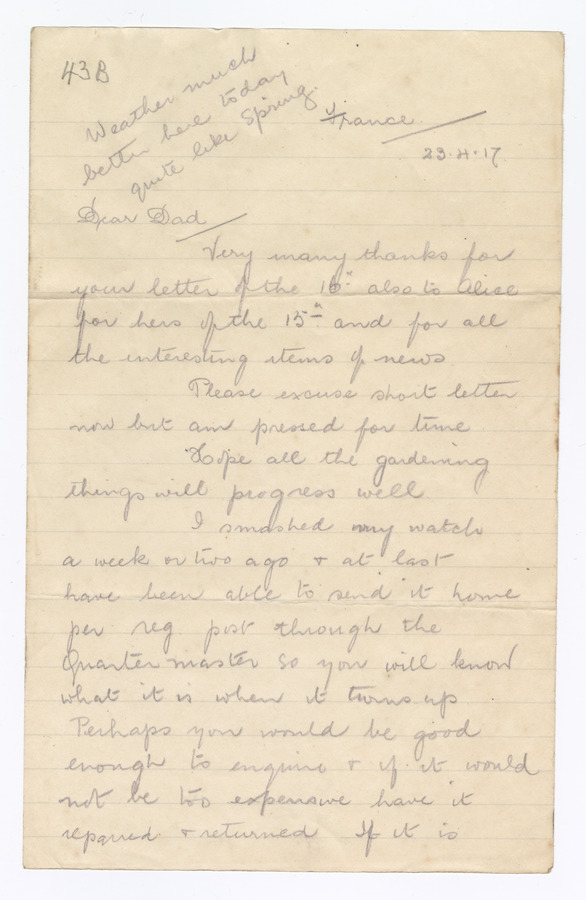 43B
Weather much
better here today
quite like Spring.
France
23.4.17
Dear Dad
Very many thanks for
your letter of the 16th also to Alice
for hers of the 15th and for all
the interesting items of news
Please excuse short letter
now but am pressed for time
Hope all the gardening
things will progress well
I smashed my watch
a week or two ago + at last
have been able to send it home
per reg post through the
Quartermaster so you will know
what it is when it turns up
Perhaps you would be good
enough to enquire + if it would
not be too expensive have it
repaired + returned If it is